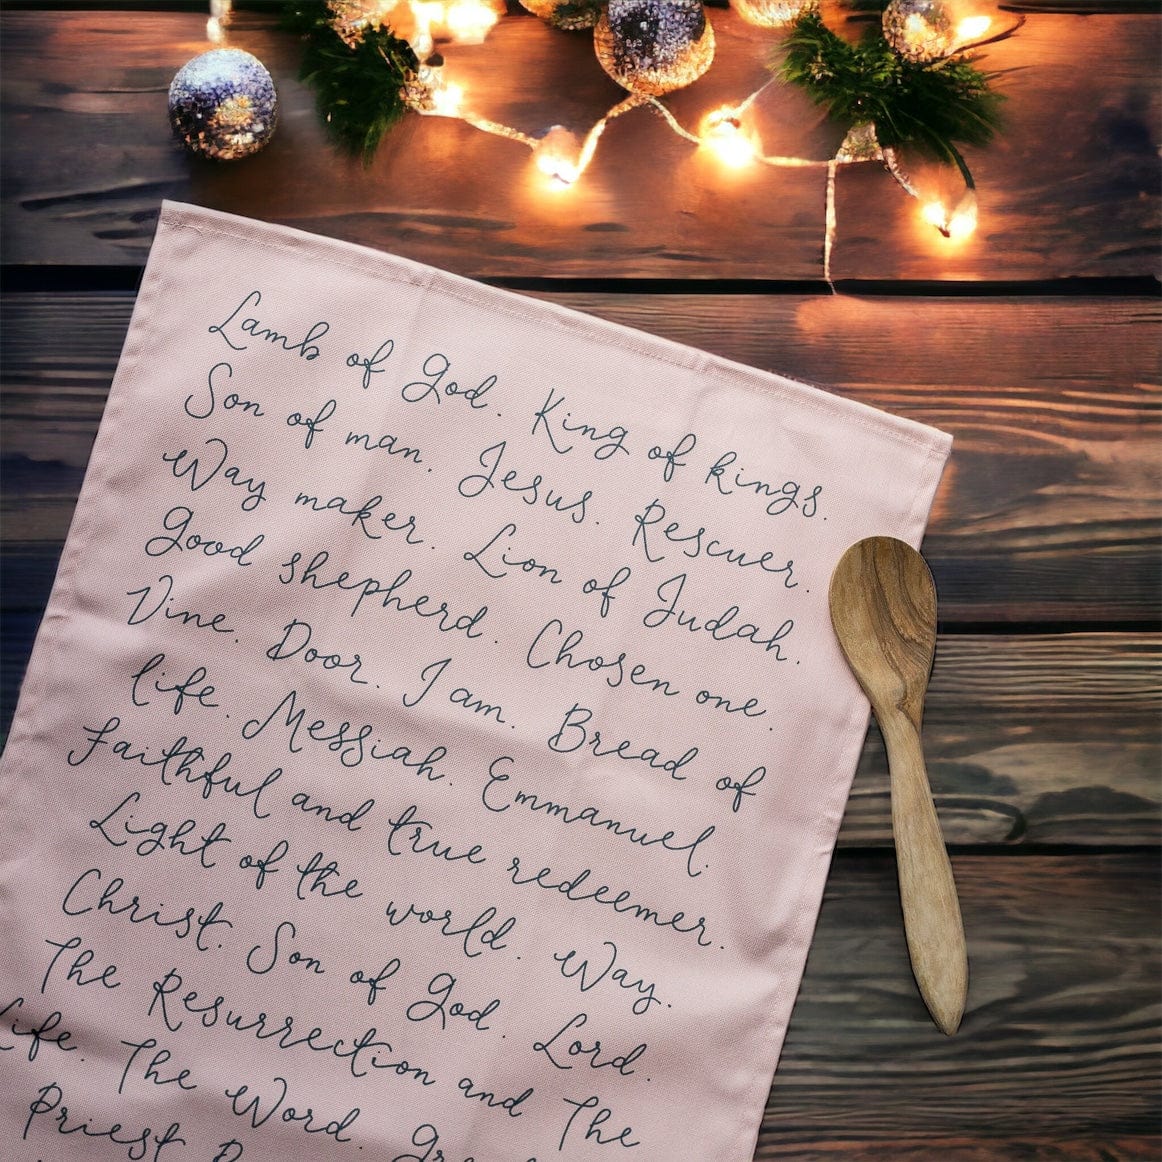 Lamb of God. King of kings.
Son of man. Jesus. Rescuer.
Way maker. Lion of Judah.
Good shepherd. Chosen one.
Vine. Door. I am. Bread of
life. Messiah. Emmanuel.
Faithful and true redeemer.
Light of the world. Way.
Christ. Son of God. Lord.
The Resurrection and The
Life. The Word.
Priest